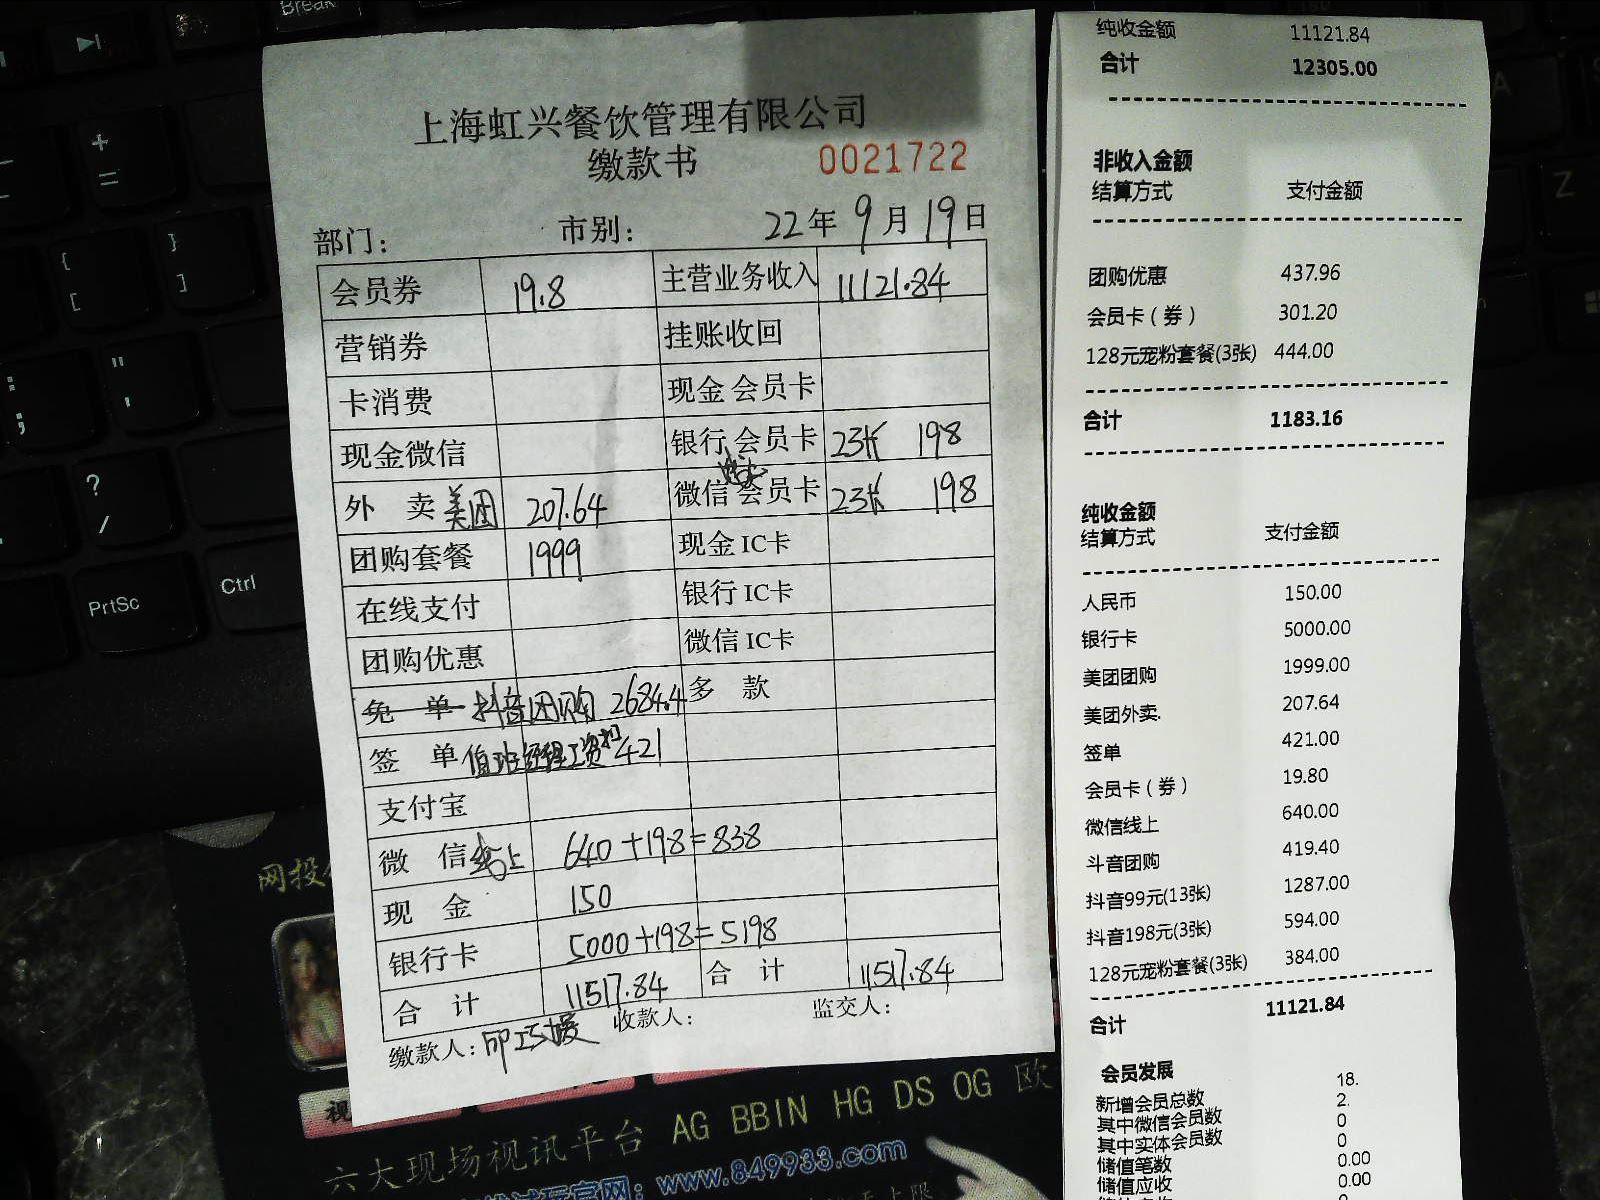 Break
PrtSc
Ctrl
上海虹兴餐饮管理有限公司
缴款书 0021722
部门: 市别: 22年9月19日
会员券 19.8 主营业务收入 11121.84
营销券 挂账收回
卡消费 现金会员卡
现金微信 银行会员卡 23张 198
外 卖 美团 207.64 微信会员卡 23张 198
团购套餐 1999 现金IC卡
在线支付 银行IC卡
团购优惠 微信IC卡
免 单 抖音团购 2684.4 多 款
签 单 值班经理工资扣 421
支付宝
微 信 线上 640+198=838
现 金 150
银行卡 5000+198=5198
合 计 11517.84 合 计 11517.84
缴款人: 收款人: 监交人:
纯收金额 11121.84
合计 12305.00
非收入金额
结算方式 支付金额
团购优惠 437.96
会员卡(券) 301.20
128元宠粉套餐(3张) 444.00
合计 1183.16
纯收金额
结算方式 支付金额
人民币 150.00
银行卡 5000.00
美团团购 1999.00
美团外卖. 207.64
签单 421.00
会员卡(券) 19.80
微信线上 640.00
斗音团购 419.40
抖音99元(13张) 1287.00
抖音198元(3张) 594.00
128元宠粉套餐(3张) 384.00
合计 11121.84
会员发展
新增会员总数 18.
其中微信会员数 2.
其中实体会员数 0
储值笔数 0
储值应收 0.00
0.00
网投
视
六大现场视讯平台 AG BBIN HG DS OG 欧
官网: www.849933.com